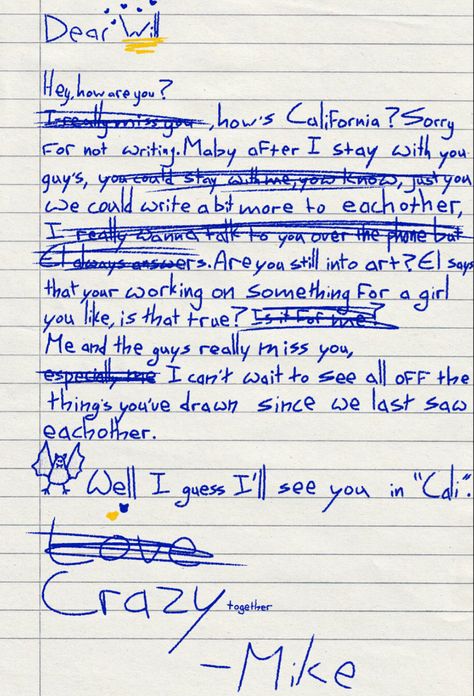 Dear Will
Hey, how are you?
I really miss you, how's California? Sorry
For not writing. Maby after I stay with you
guy's, you could stay with me, yow know, just you
we could write a bit more to eachother,
I really wanna talk to you over the phone but
El always answers. Are you still into art? El says
that your working on something For a girl
you like, is that true? Is it For me?
Me and the guys really miss you,
especially me I can't wait to see all oFF the
thing's you've drawn since we last saw
eachother.
Well I guess I'll see you in "Cali".
Love
Crazy together
-Mike